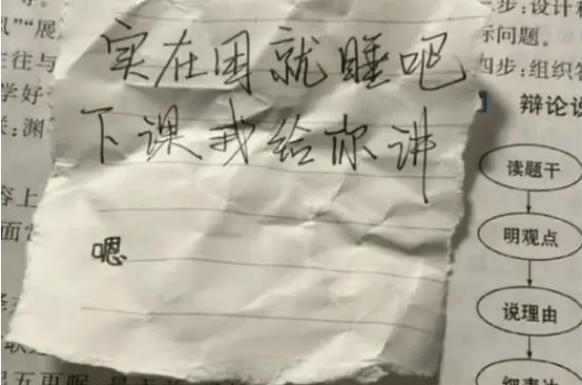 实在困就睡吧
下课我给你讲
嗯
步:设计
际问题。
四步:组织答
辩论
读题干
明观点
说理由
风”“展
往与
学好
:渊
容上
面